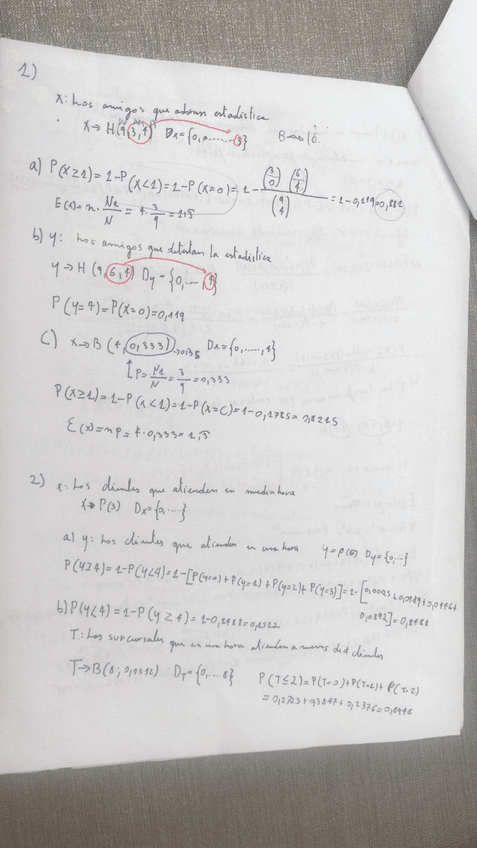 1)
X: Los amigos que adoran estadística
X → H(9,3,4) Dx={0,......,3} B → 10.
a) P(X≥1)=1-P(X<1)=1-P(X=0)=1- (3 0)(6 4) / (9 4) =1-0,119=0,881
E(x)=n·N1/N=4·3/9=1,3
b) y: Los amigos que detestan la estadística
y → H(9,6,4) Dy={0,...4}
P(y=4)=P(X=0)=0,119
C) X→B(4,0,333)→0,35 Dx={0,.....,4}
P=N1/N=3/9=0,333
P(X≥1)=1-P(X<1)=1-P(X=0)=1-0,1785=0,8215
E(x)=np=4·0,333=1,3
2) x: Los clientes que atienden en media hora
X→P(3) Dx={0,.....}
a) y: Los clientes que atienden en una hora y=P(6) Dy={0,...}
P(y≥4)=1-P(y<4)=1-[P(y=0)+P(y=1)+P(y=2)+P(y=3)]=1-[0,0025+0,0149+0,0446+
0,0892]=0,8488
b) P(y<4)=1-P(y≥4)=1-0,8488=0,1512
T: Las sucursales que en una hora atienden a menos de 4 clientes
T→B(8,0,1512) DT={0,...8} P(T≤2)=P(T=0)+P(T=1)+P(T=2)
=0,2723+0,3847+0,2376=0,8946